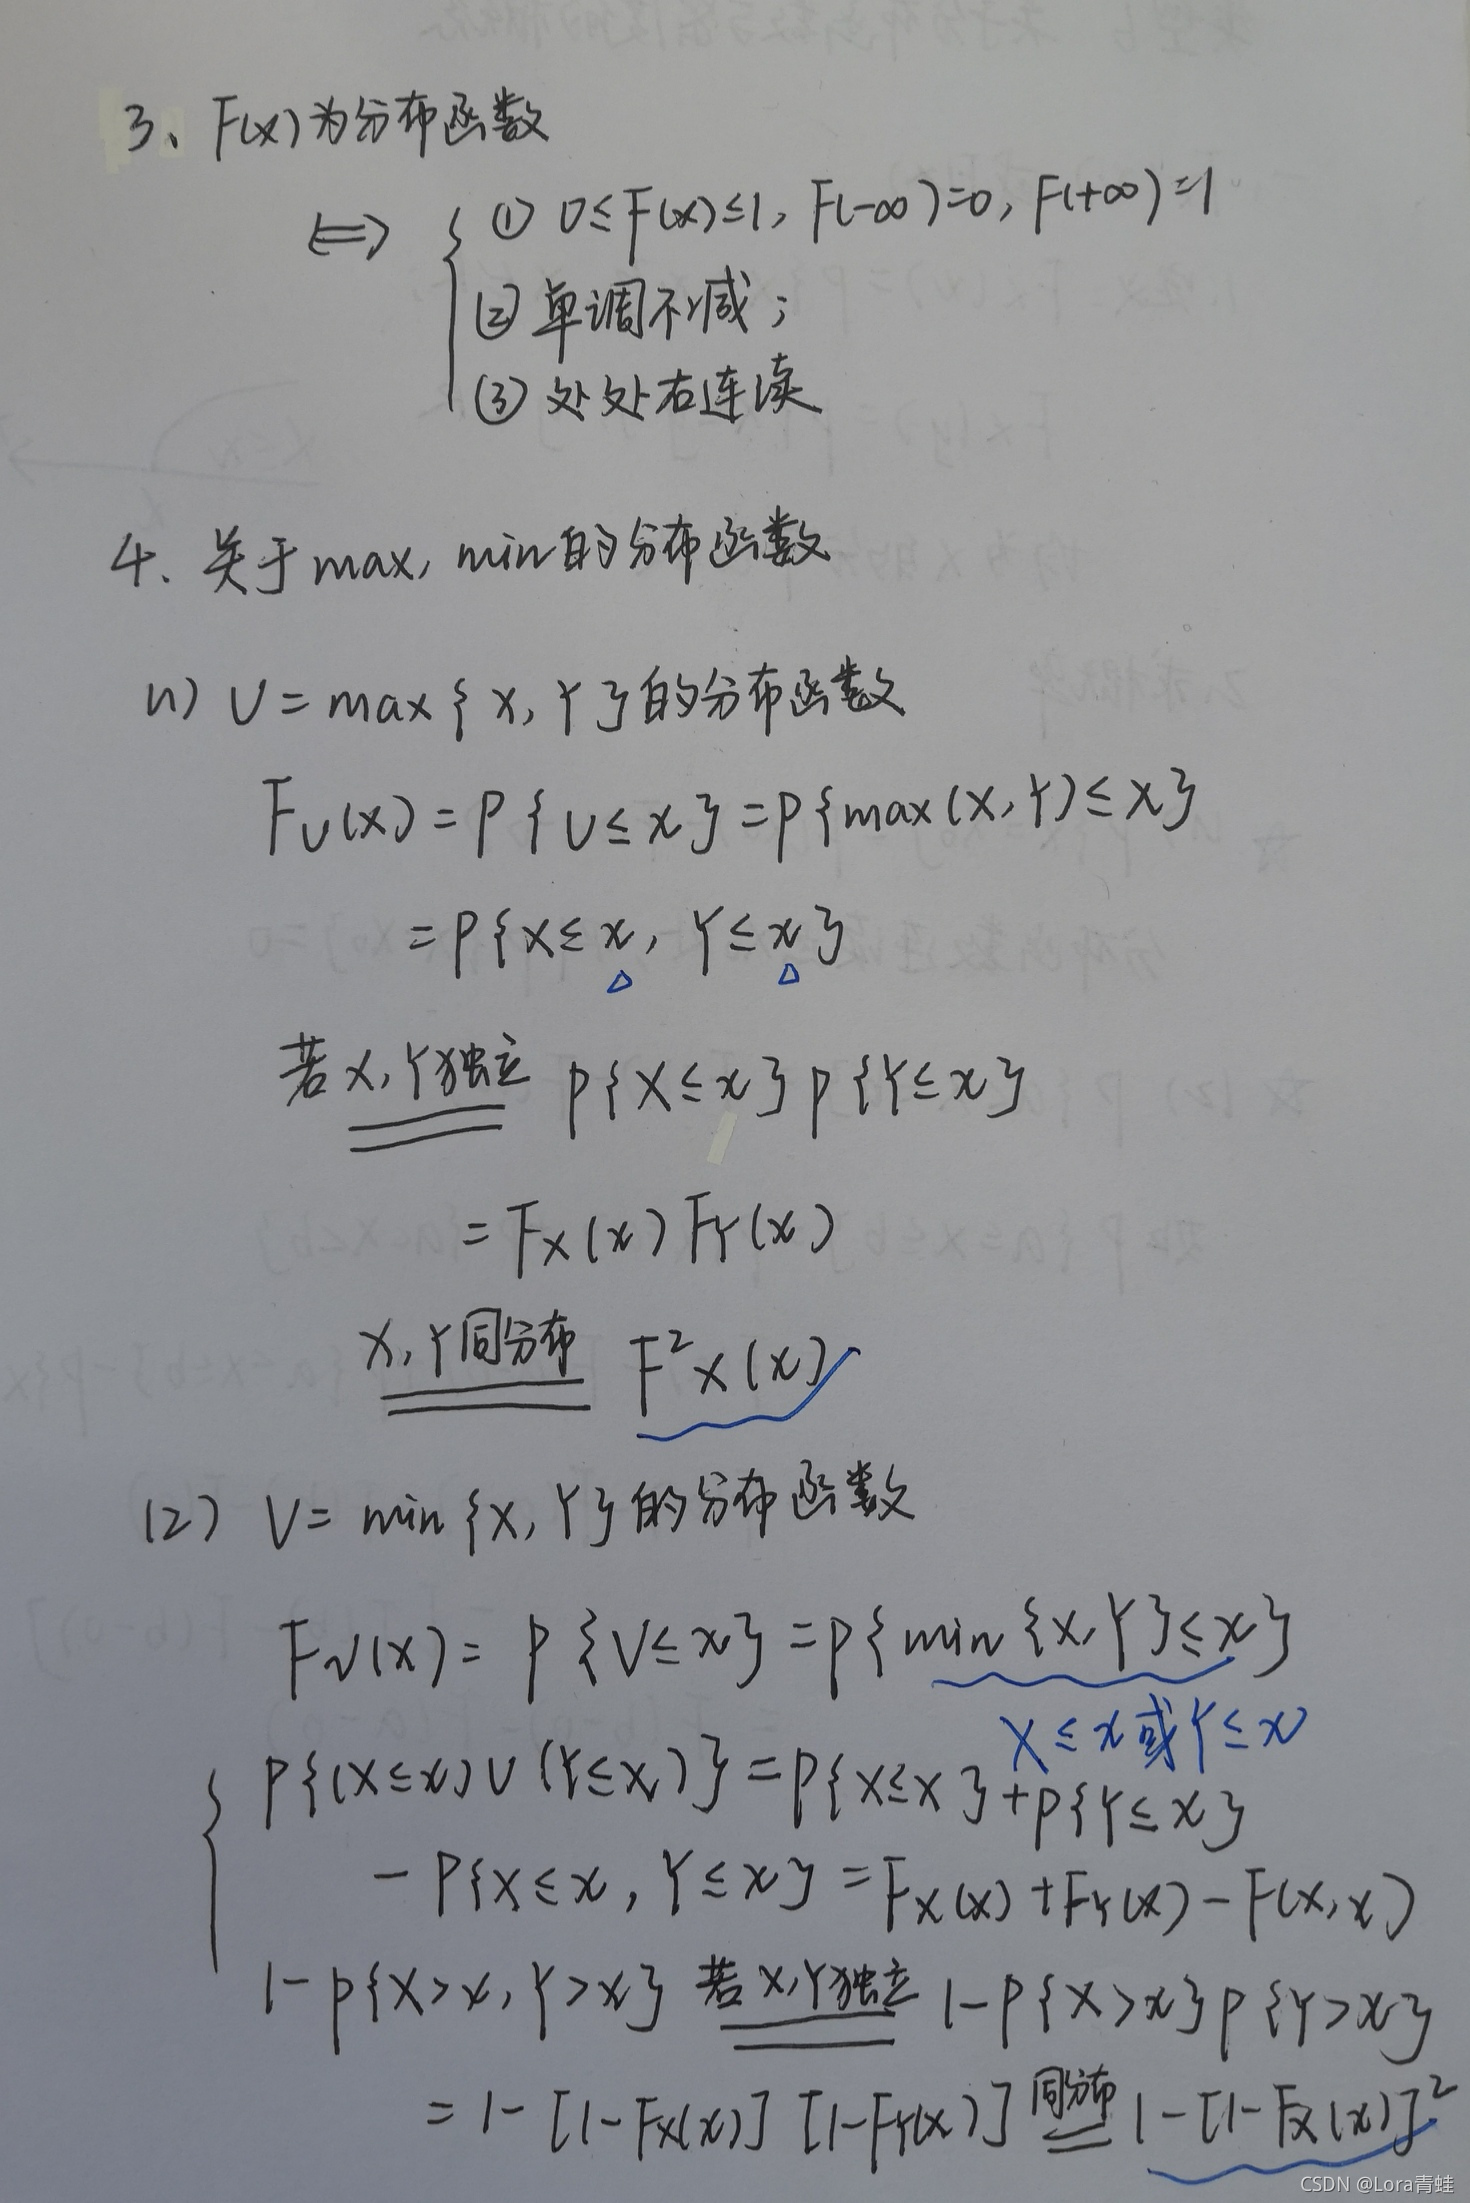 3、F(x)为分布函数
⇔ { ① 0≤F(x)≤1, F(-∞)=0, F(+∞)=1
② 单调不减;
③ 处处右连续
4. 关于max, min的分布函数
(1) U = max{X, Y}的分布函数
F_U(x) = P{U≤x} = P{max(X,Y)≤x}
= P{X≤x, Y≤x}
△ △
若X,Y独立 P{X≤x}P{Y≤x}
= F_X(x) F_Y(x)
X,Y同分布 F²_X(x)
(2) V = min{X, Y}的分布函数
F_V(x) = P{V≤x} = P{min{X,Y}≤x}
X≤x或Y≤x
{ P{(X≤x)∪(Y≤x)} = P{X≤x}+P{Y≤x}
- P{X≤x, Y≤x} = F_X(x)+F_Y(x)-F(x,x)
1-P{X>x, Y>x} 若X,Y独立 1-P{X>x}P{Y>x}
= 1-[1-F_X(x)][1-F_Y(x)] 同分布 1-[1-F_X(x)]²
CSDN @Lora青蛙